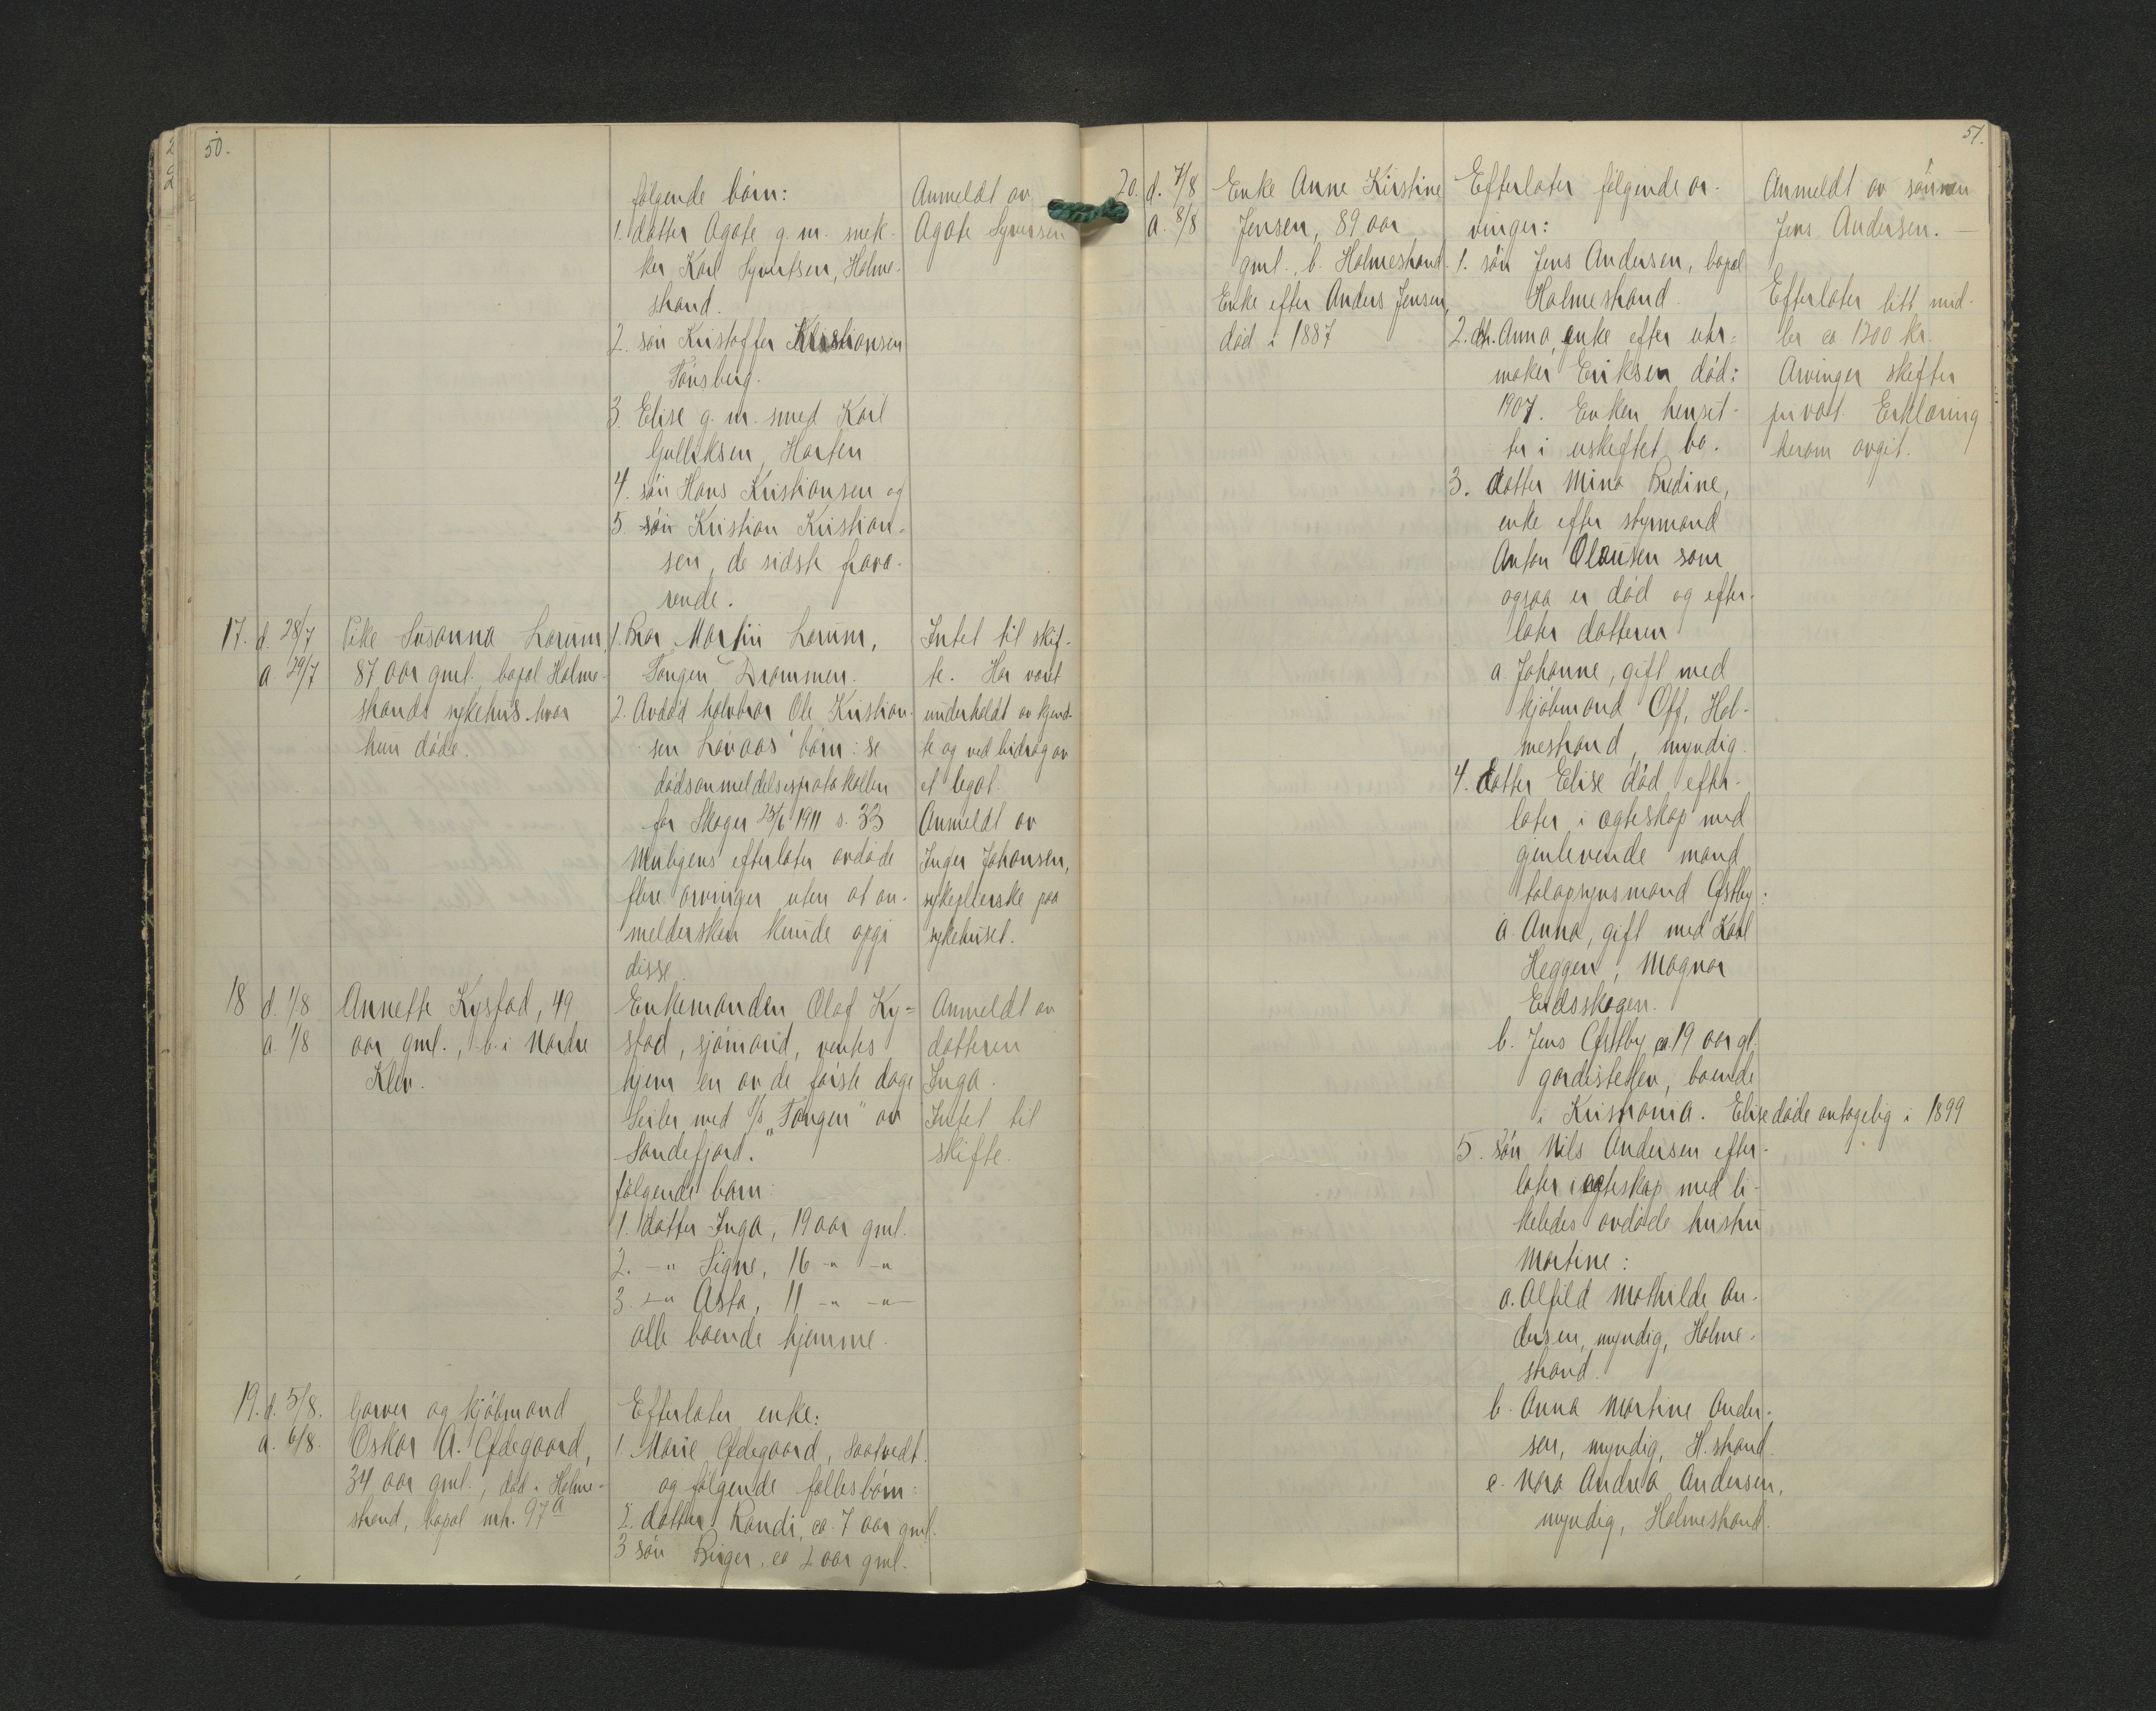 50.
følgende børn:
1. datter Agate g. m. snek-
ker Karl Syvertsen, Holme-
strand.
2. søn Kristoffer Kristiansen
Tønsberg.
3. Elise g. m. smed Karl
Gulliksen, Horten
4. søn Hans Kristiansen og
5. søn Kristian Kristian-
sen, de sidste fravæ-
rende.
Anmeldt av
Agate Syversen
17. d. 28/7
a 29/7
Pike Susanna Lorum,
87 aar gml. bopæl Holme-
strands sykehus hvor
hun døde.
1. Bror Martin Lorum,
Tangen Drammen.
2. Avdød halvbror Ole Kristian-
sen Løvaas' børn: se
dødsanmeldelsesprotokollen
for Skoger 23/6 1911 s. 33
Muligens efterlater avdøde
flere arvinger uten at an-
meldersken kunde opgi
disse.
Intet til skif-
te. Har vært
underholdt av kjend-
te og ved bidrag av
et legat.
Anmeldt av
Inger Johansen,
sykepleierske paa
sykehuset.
18 d. 1/8
a. 1/8
Annette Kystad, 49
aar gml., b. i Nordre
Klev.
Enkemanden Olaf Ky=
stad, sjømand, ventes
hjem en av de første dage
Seiler med S/S "Tangen" av
Sandefjord.
følgende barn:
1. datter Inga, 19 aar gml.
2. -"- Signe, 16 -"- -"-
3. -"- Asta, 11 -"- -"-
alle boende hjemme.
Anmeldt av
datteren
Inga.
Intet til
skifte.
19. d. 5/8.
a. 6/8.
Garver og kjøbmand
Oskar A. Ødegaard,
34 aar gml., død i Holme-
strand, bopæl mtr. 97a
Efterlater enke:
1. Marie Ødegaard, Saatvedt.
og følgende fællesbørn:
2. datter Randi, ca. 7 aar gml.
3 søn Birger, ca 2 aar gml.
51.
20. d. 7/8
a. 8/8
Enke Anne Kirstine
Jensen, 89 aar
gml., b. Holmestrand.
Enke efter Anders Jensen,
død i 1887
Efterlater følgende ar-
vinger:
1. søn Jens Andersen, bopæl
Holmestrand.
2. dtr. Anna, enke efter uhr-
maker Eriksen død:
1907. Enken hensit-
ter i uskiftet bo.
3. datter Mina Bredine,
enke efter styrmand
Anton Olausen som
ogsaa er død og efter-
later datteren
a. Johanne, gift med
kjøbmand Off, Hol-
mestrand, myndig.
4. datter Elise død efter-
later i egteskap med
gjenlevende mand
tolopsynsmand Østby:
a. Anna, gift med Karl
Heggen, Magnor
Eidsskogen.
b. Jens Østby ca. 19 aar gl.
gardistelev, boende
i Kristiania. Elise døde antagelig i 1899
5. søn Nils Andersen efter-
later i egteskap med li-
keledes avdøde hustru
Martine:
a. Alfild Mathilde An-
dersen, myndig, Holme-
strand.
b. Anna Martine Ander-
sen, myndig, H.strand.
c. Nora Andrea Andersen,
myndig, Holmestrand.
Anmeldt av sønnen
Jens Andersen. —
Efterlater litt mid-
ler ca 1200 kr.
Arvinger skifter
privat. Erklæring
herom avgit.